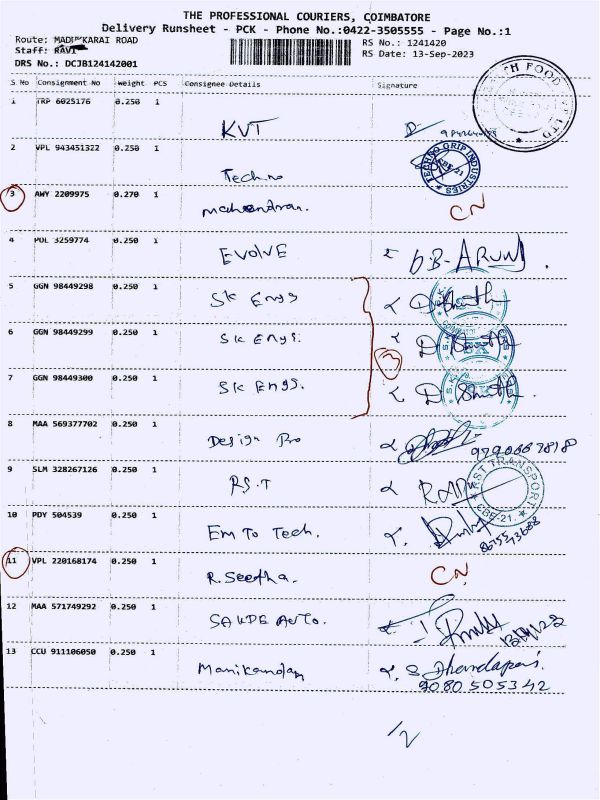 THE PROFESSIONAL COURIERS, COIMBATORE
Delivery Runsheet - PCK - Phone No.:0422-3505555 - Page No.:1
Route: MADUKKARAI ROAD
Staff: RAVI
DRS No.: DCJB124142001
RS No.: 1241420
RS Date: 13-Sep-2023
S No Consignment No Weight PCS Consignee Details Signature
1 TRP 6025176 0.250 1 KVT
2 VPL 943451322 0.250 1 Techno
TECHNO GRIP INDUSTRIES CBE-21
3 AWY 2209975 0.270 1 Mahendran. CN
4 POL 3259774 0.250 1 EVOLVE D.B-ARUN
5 GGN 98449298 0.250 1 SK Engs
6 GGN 98449299 0.250 1 SK Engs. 3
7 GGN 98449300 0.250 1 SK Engs.
8 MAA 569377702 0.250 1 Design Pro
9 SLM 328267126 0.250 1 RS.T
KST TRANSPORT CBE-21.
10 PDY 504539 0.250 1 Em To Tech.
11 VPL 220168174 0.250 1 R.Seetha. CN
12 MAA 571749292 0.250 1 Auto.
13 CCU 911106050 0.250 1 Manikandan S. Dhandapani
9080505342
1/2